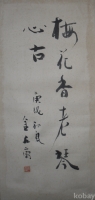 梅花香老琴
心古
庚戌初夏
kobay